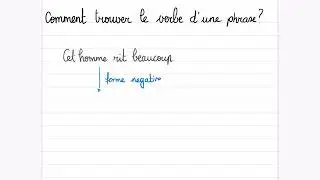 Comment trouver le verbe d'une phrase?
Cet homme rit beaucoup
forme negative